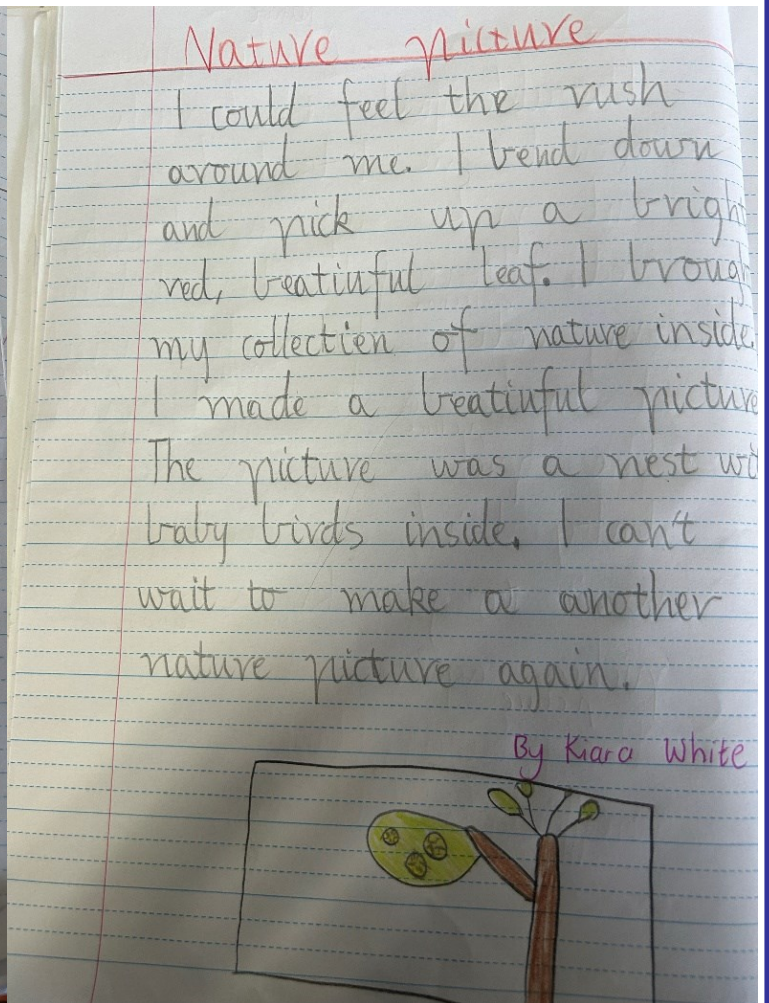 Nature picture
I could feel the rush
around me. I bend down
and pick up a brigh
red, beatiuful leaf. I broug
my collectien of nature inside.
I made a beatiuful picture
The picture was a nest wi
baby birds inside. I can't
wait to make a another
nature picture again.
By Kiara White